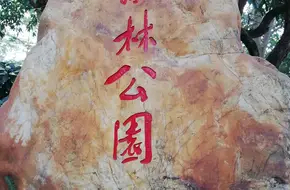 林公園